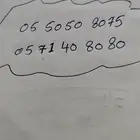 05 5050 8075
0571 40 8080